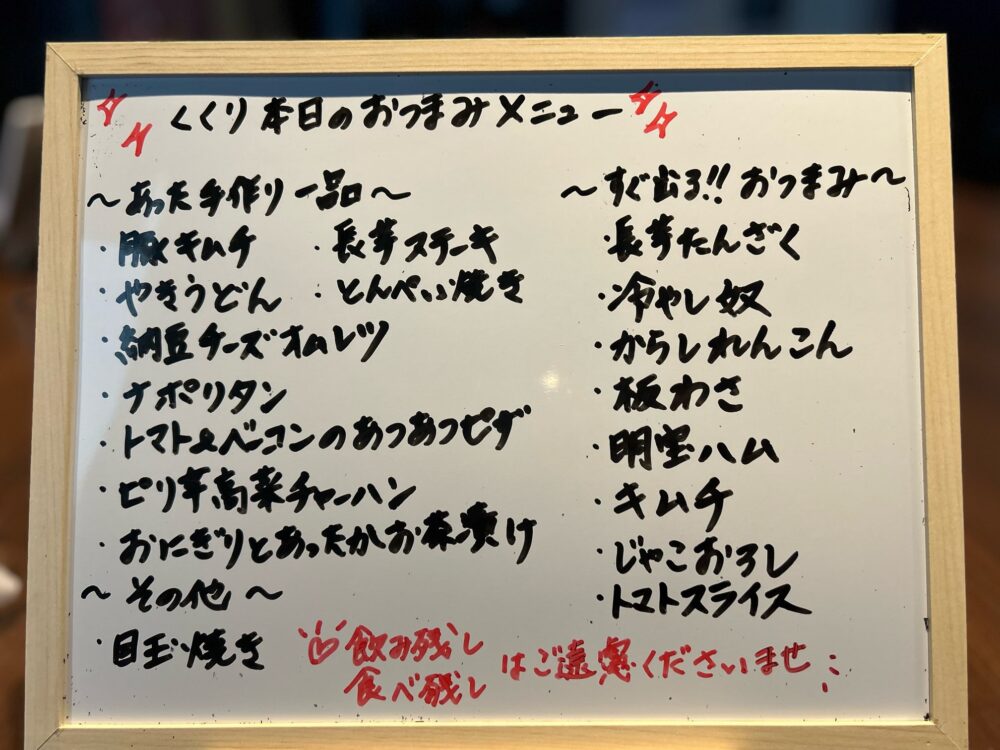 くくり 本日のおつまみメニュー
～あった手作り一品～
・豚キムチ ・長芋ステーキ
・やきうどん ・とんぺい焼き
・納豆チーズオムレツ
・ナポリタン
・トマト&ベーコンのあつあつピザ
・ピリ辛高菜チャーハン
・おにぎりとあったかお茶漬け
～その他～
・目玉焼き
～すぐ出る!!おつまみ～
・長芋たんざく
・冷やし奴
・からしれんこん
・板わさ
・明宝ハム
・キムチ
・じゃこおろし
・トマトスライス
飲み残し
食べ残し
はご遠慮くださいませ